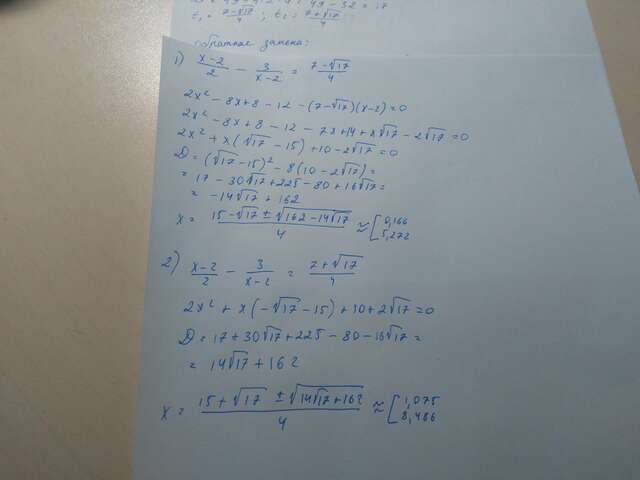 t₁ = (7-√17)/4 ; t₂ = (7+√17)/4
обратная замена:
1) (x-2)/2 - 3/(x-2) = (7-√17)/4
2x² - 8x+8 - 12 - (7-√17)(x-2)=0
2x² - 8x+8 - 12 - 7x+14+x√17 - 2√17 = 0
2x² + x(√17 - 15) + 10 - 2√17 = 0
D = (√17-15)² - 8(10 - 2√17) =
= 17 - 30√17 + 225 - 80 + 16√17 =
= -14√17 + 162
x = (15-√17 ± √(162-14√17))/4 ≈ [0,166
5,272
2) (x-2)/2 - 3/(x-2) = (7+√17)/4
2x² + x(-√17-15) + 10+2√17=0
D = 17 + 30√17 + 225 - 80 - 16√17 =
= 14√17 + 162
x = (15+√17 ± √(14√17+162))/4 ≈ [1,075
8,486